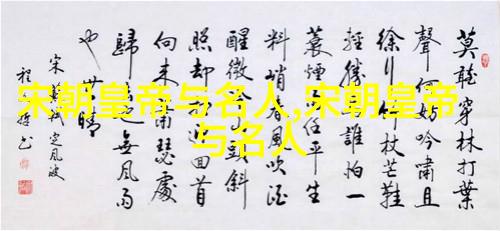 宋朝皇帝与名人,宋朝皇帝
与名人
莫聽穿林打葉
聲何妨吟嘯且
徐行竹杖芒鞋
輕勝馬誰怕一
蓑煙雨任平生
料峭春風吹酒
醒微冷頭斜
照却迎回首
向来瑟處
歸去無風雨
也無晴
宋定風波
程书